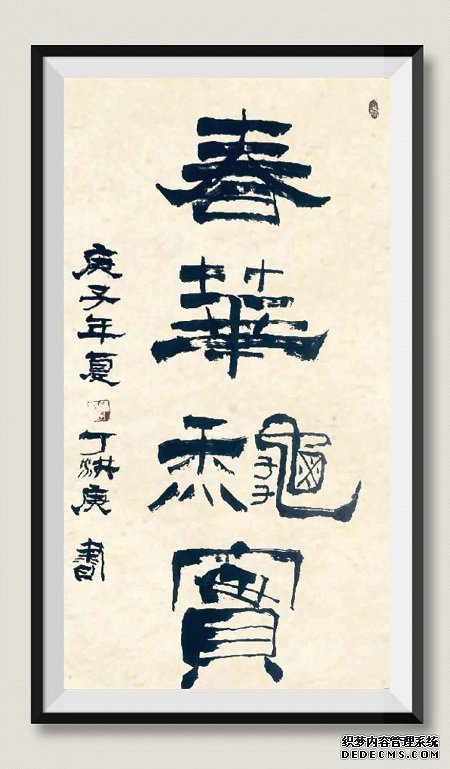 春華龝實
庚子年夏 丁洪庚 書
织梦内容管理系统
DEDECMS.COM